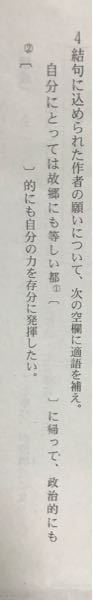 4 結句に込められた作者の願いについて、次の空欄に適語を補え。
自分にとっては故郷にも等しい都①〔　　　〕に帰って、政治的にも
②〔　　　〕的にも自分の力を存分に発揮したい。